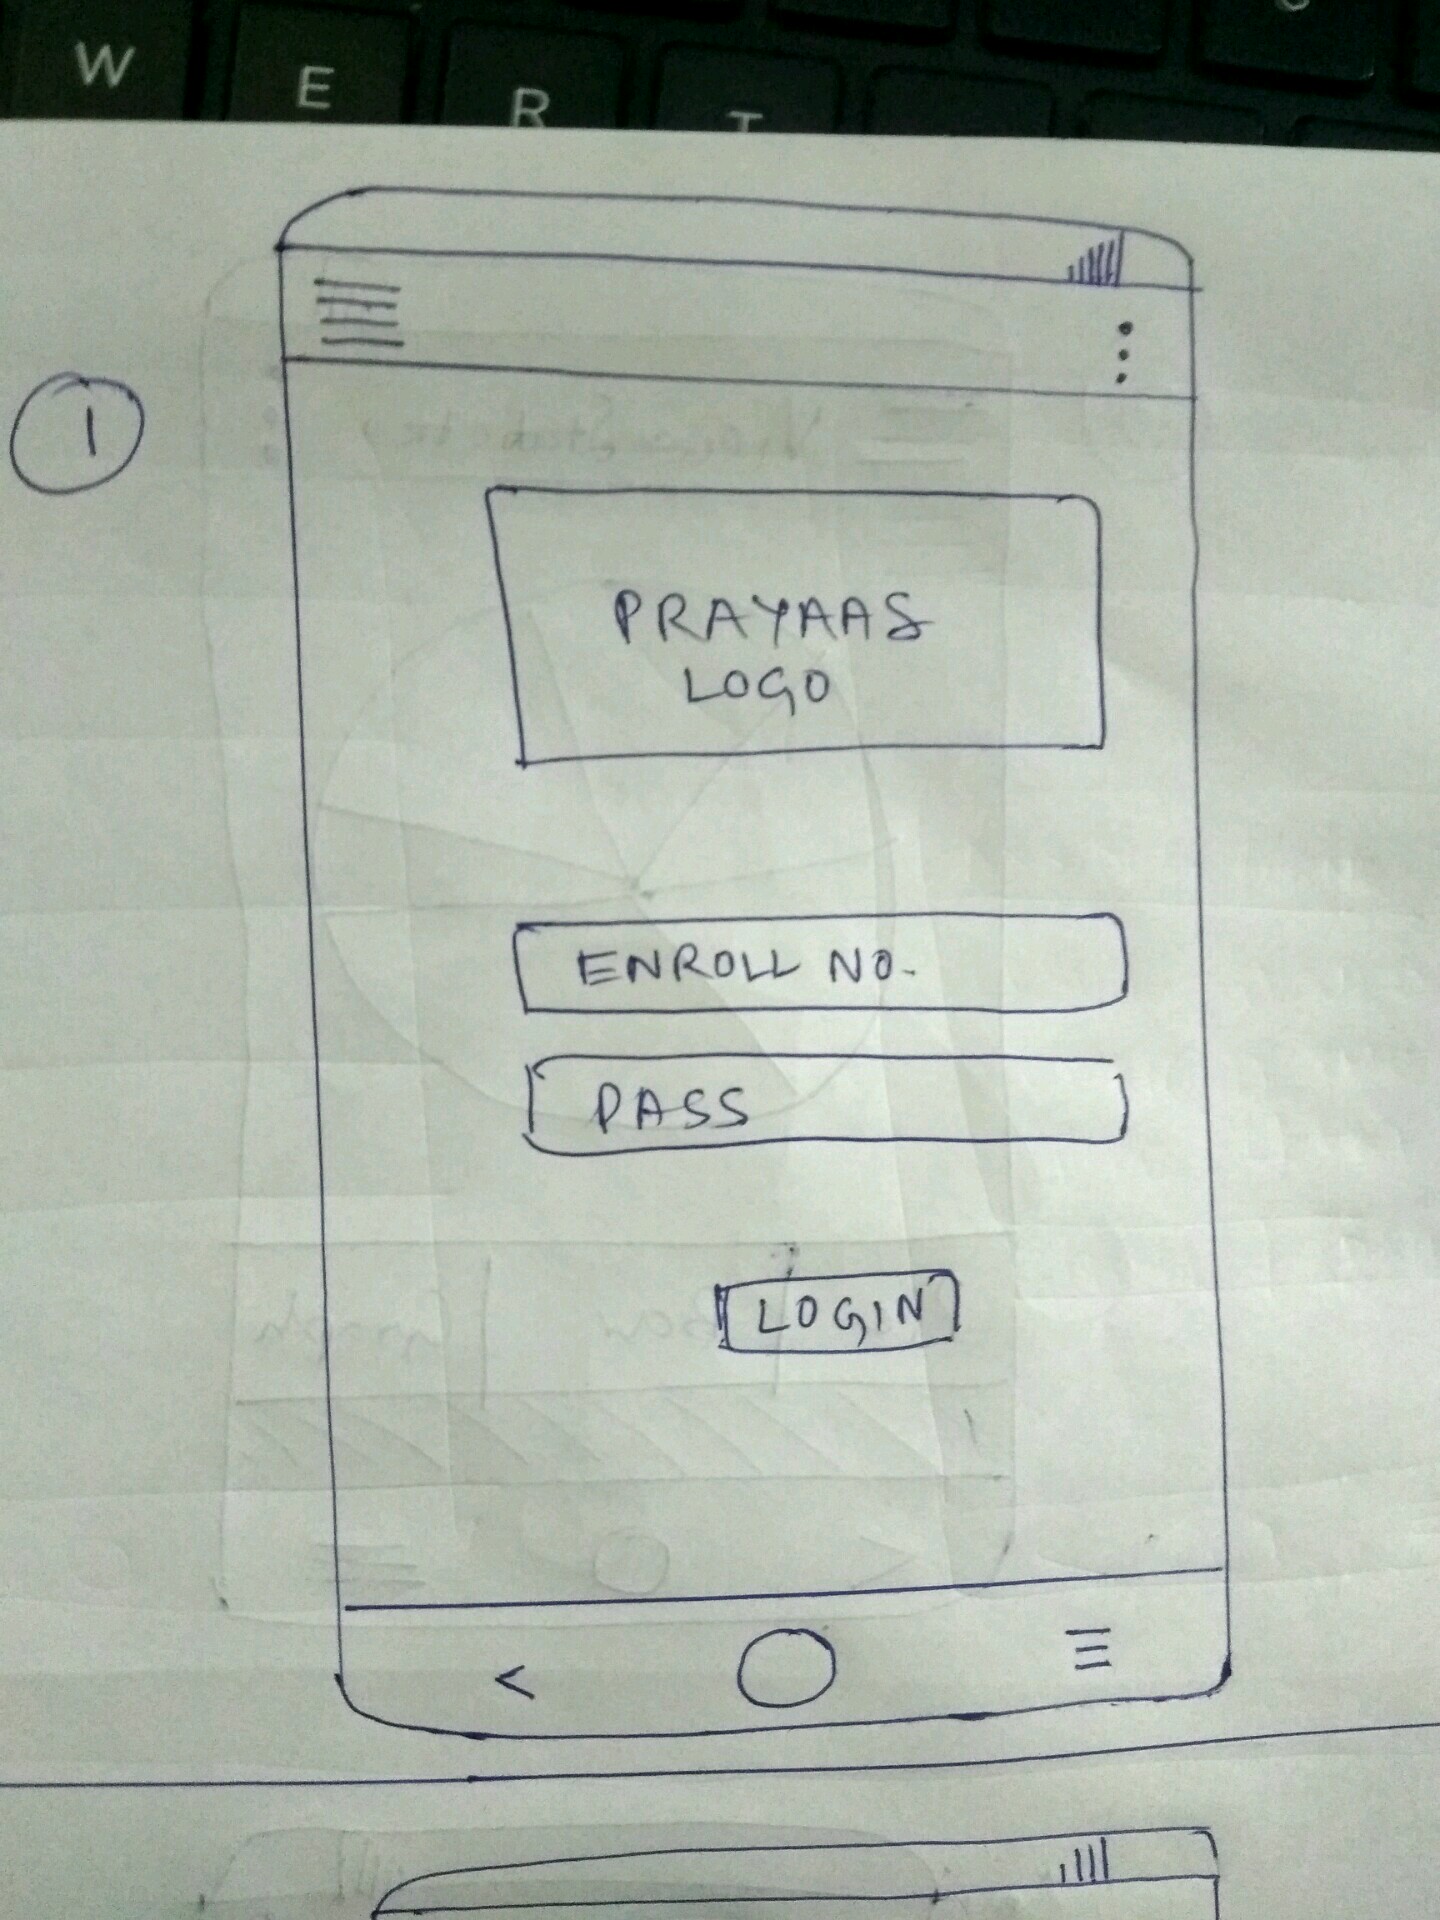 W E R T
1
PRAYAAS
LOGO
ENROLL NO.
PASS
LOGIN